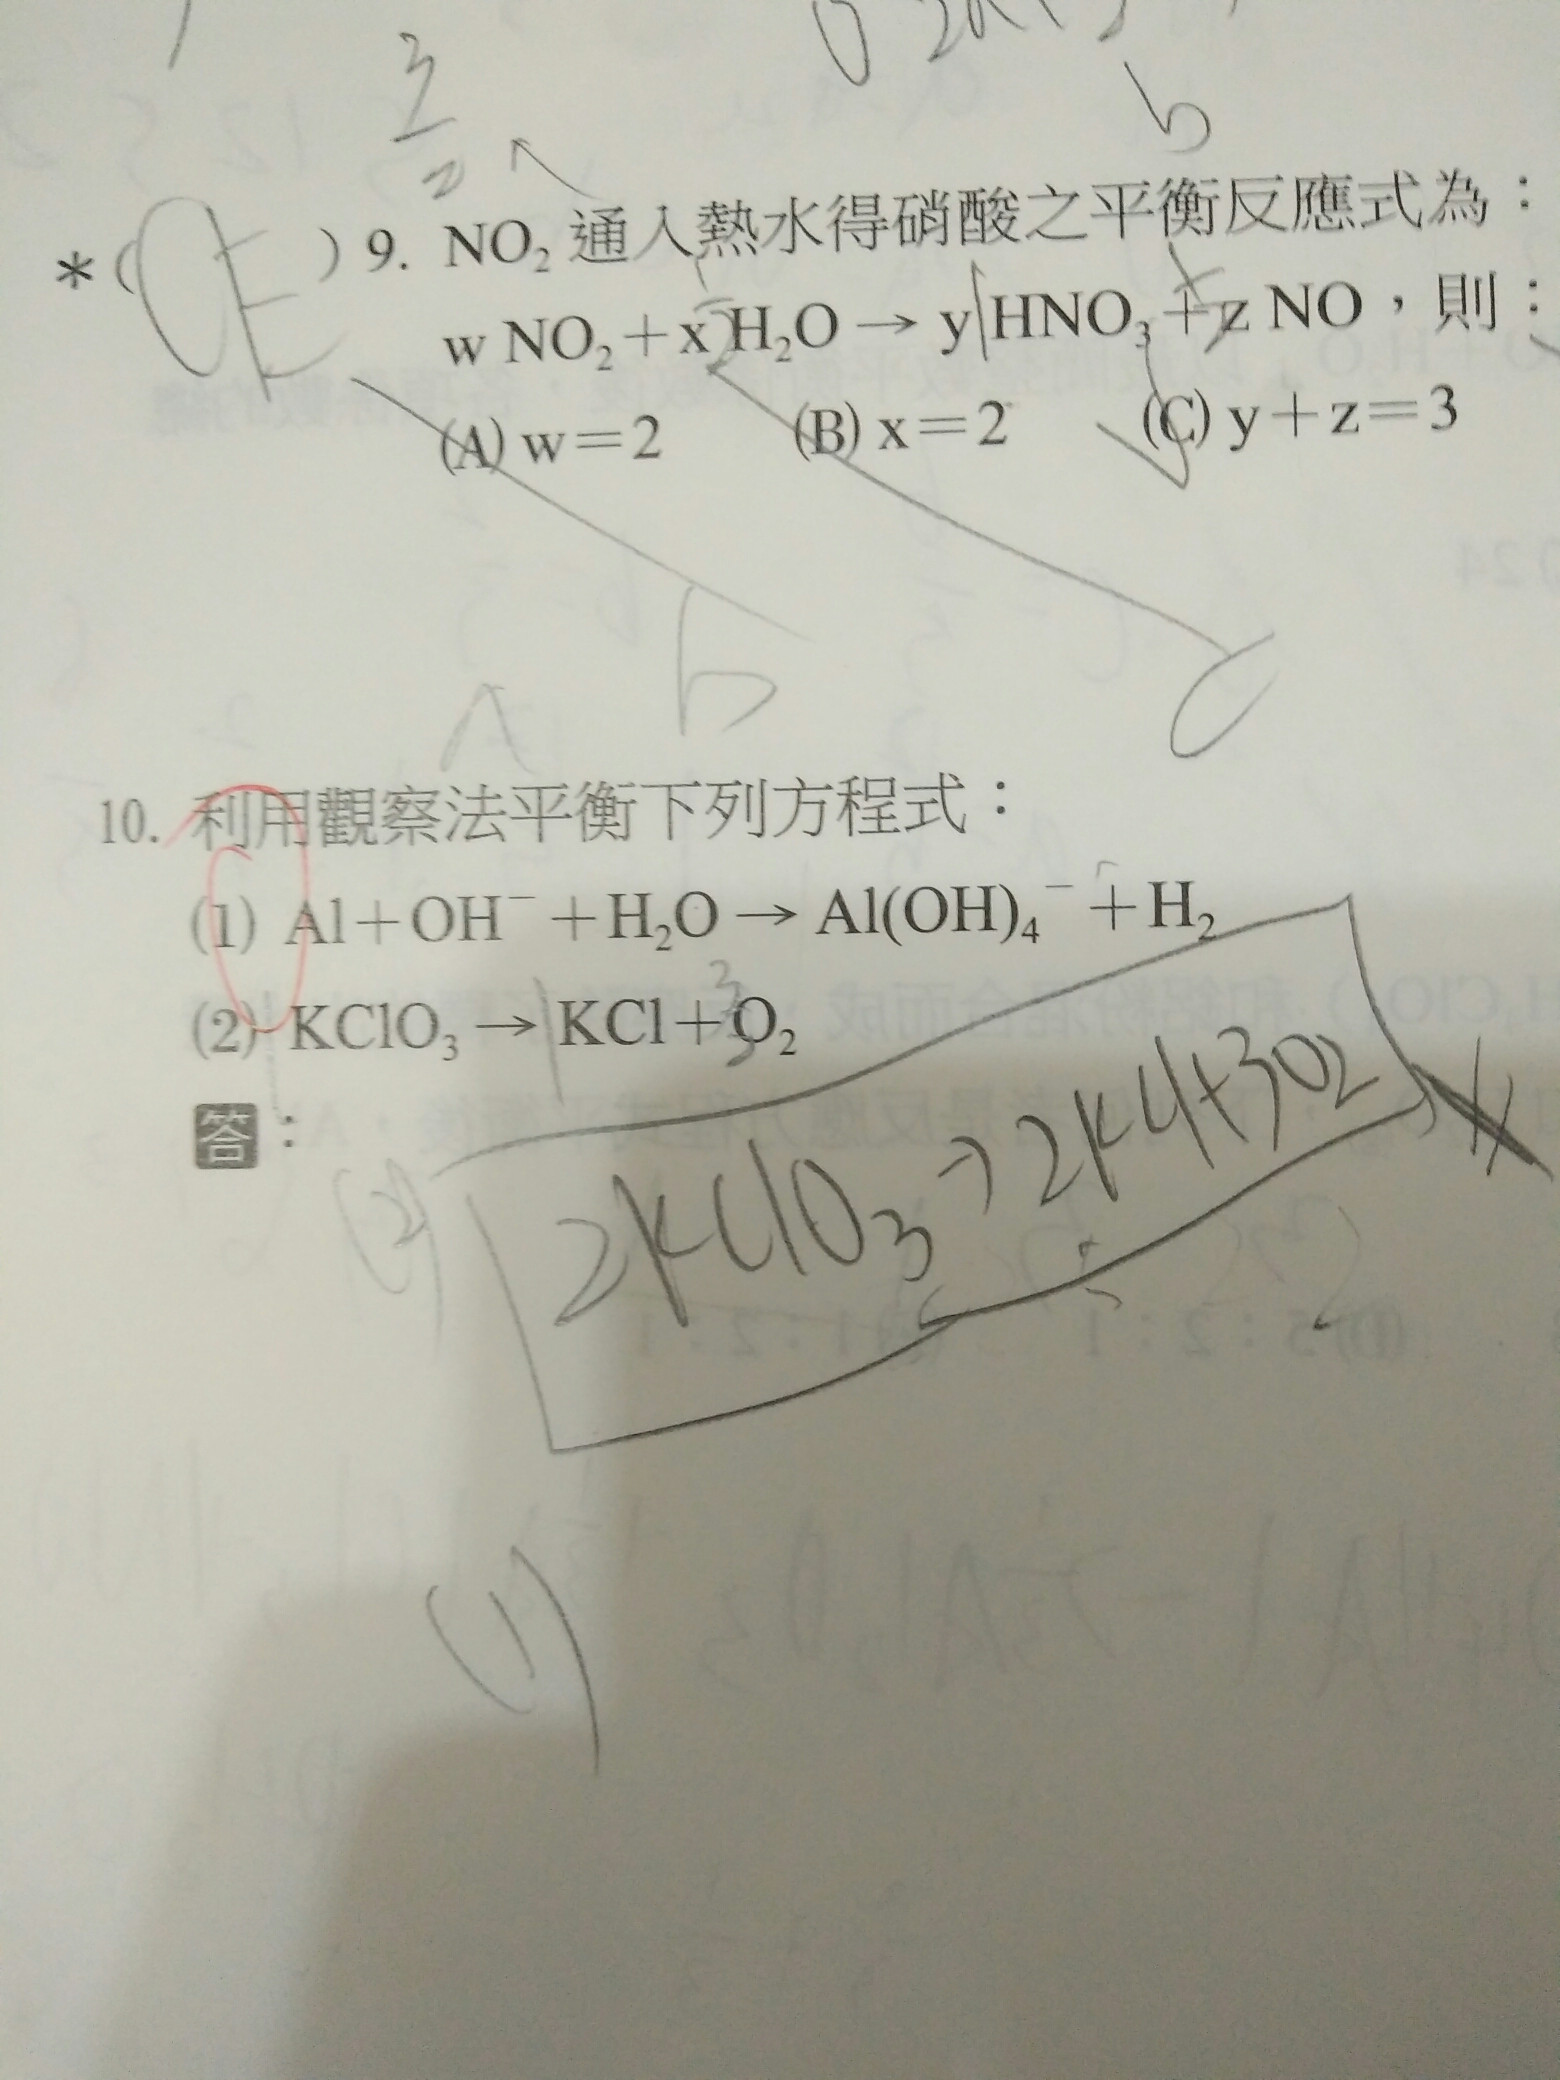 b
*(CE)9. NO₂通入熱水得硝酸之平衡反應式為：
w NO₂+x H₂O→y HNO₃+z NO，則：
(A) w=2 (B) x=2 (C) y+z=3
b
10. 利用觀察法平衡下列方程式：
(1) Al+OH⁻+H₂O→Al(OH)₄⁻+H₂
(2) KClO₃→KCl+O₂
答：
(2) 2KClO₃→2KCl+3O₂
(1)